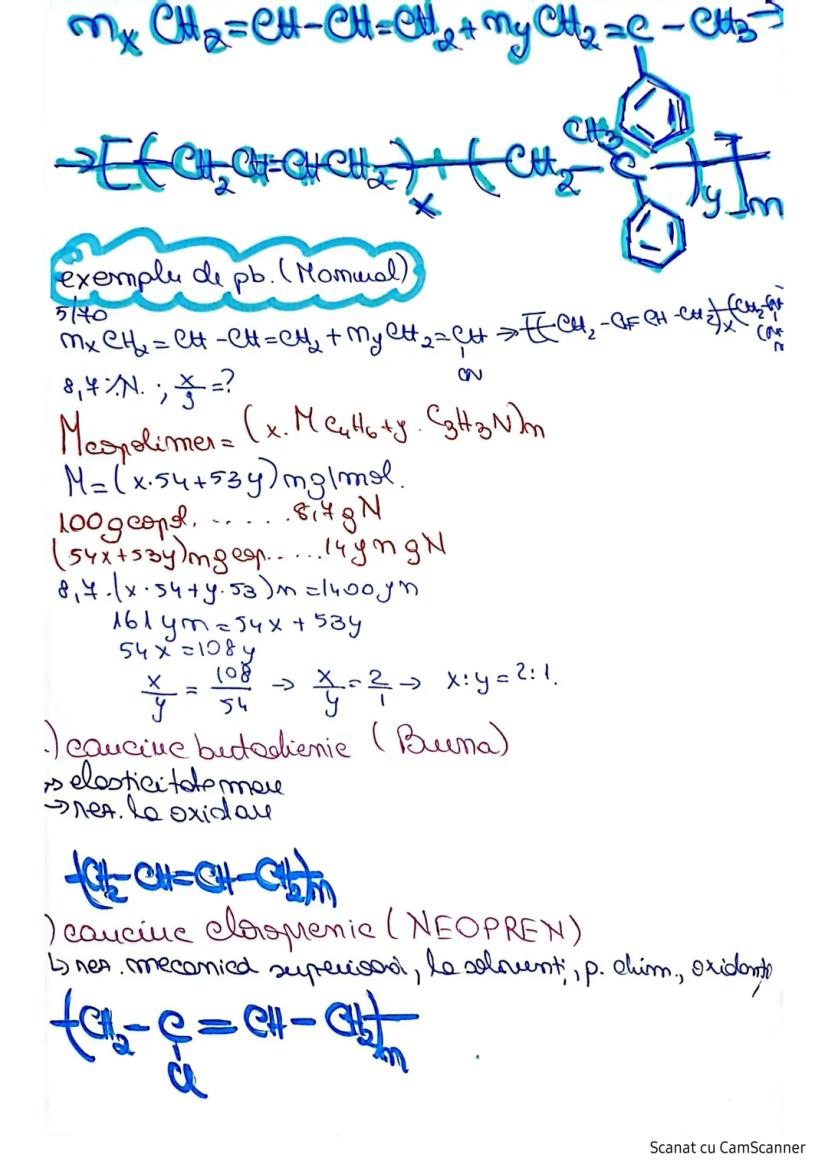 nx CH2=CH-CH=CH2 + ny CH2=C-CH3 →
→ [(CH2CH=CHCH2)x + (CH2-C)y]n
CH3
exemplu de pb. (Manual)
5/70
nx CH2=CH-CH=CH2 + ny CH2=CH → [(CH2-CH=CH-CH2)x(CH2-CH
CN
CN
n
8,7%N. ; x/y=?
Mcopolimer = (x. M C4H6 + y. C3H3N)n
M=(x·54+53y)n g/mol.
100g copol. ...... 8,7gN
(54x+53y)n g cop.......14yn gN
8,7·(x·54+y·53)n=1400yn
161yn=54x+53y
54x=108y
x/y = 108/54 → x/y = 2/1 → x:y=2:1.
.) cauciuc butadienic (Buna)
→ elasticitate mare
→ rez. la oxidare
(CH2-CH=CH-CH2)n
) cauciuc cloroprenic (NEOPREN)
↳ rez. mecanică superioară, la solvenți, p. chim., oxidanți
(CH2-C=CH-CH2)n
Cl
Scanat cu CamScanner